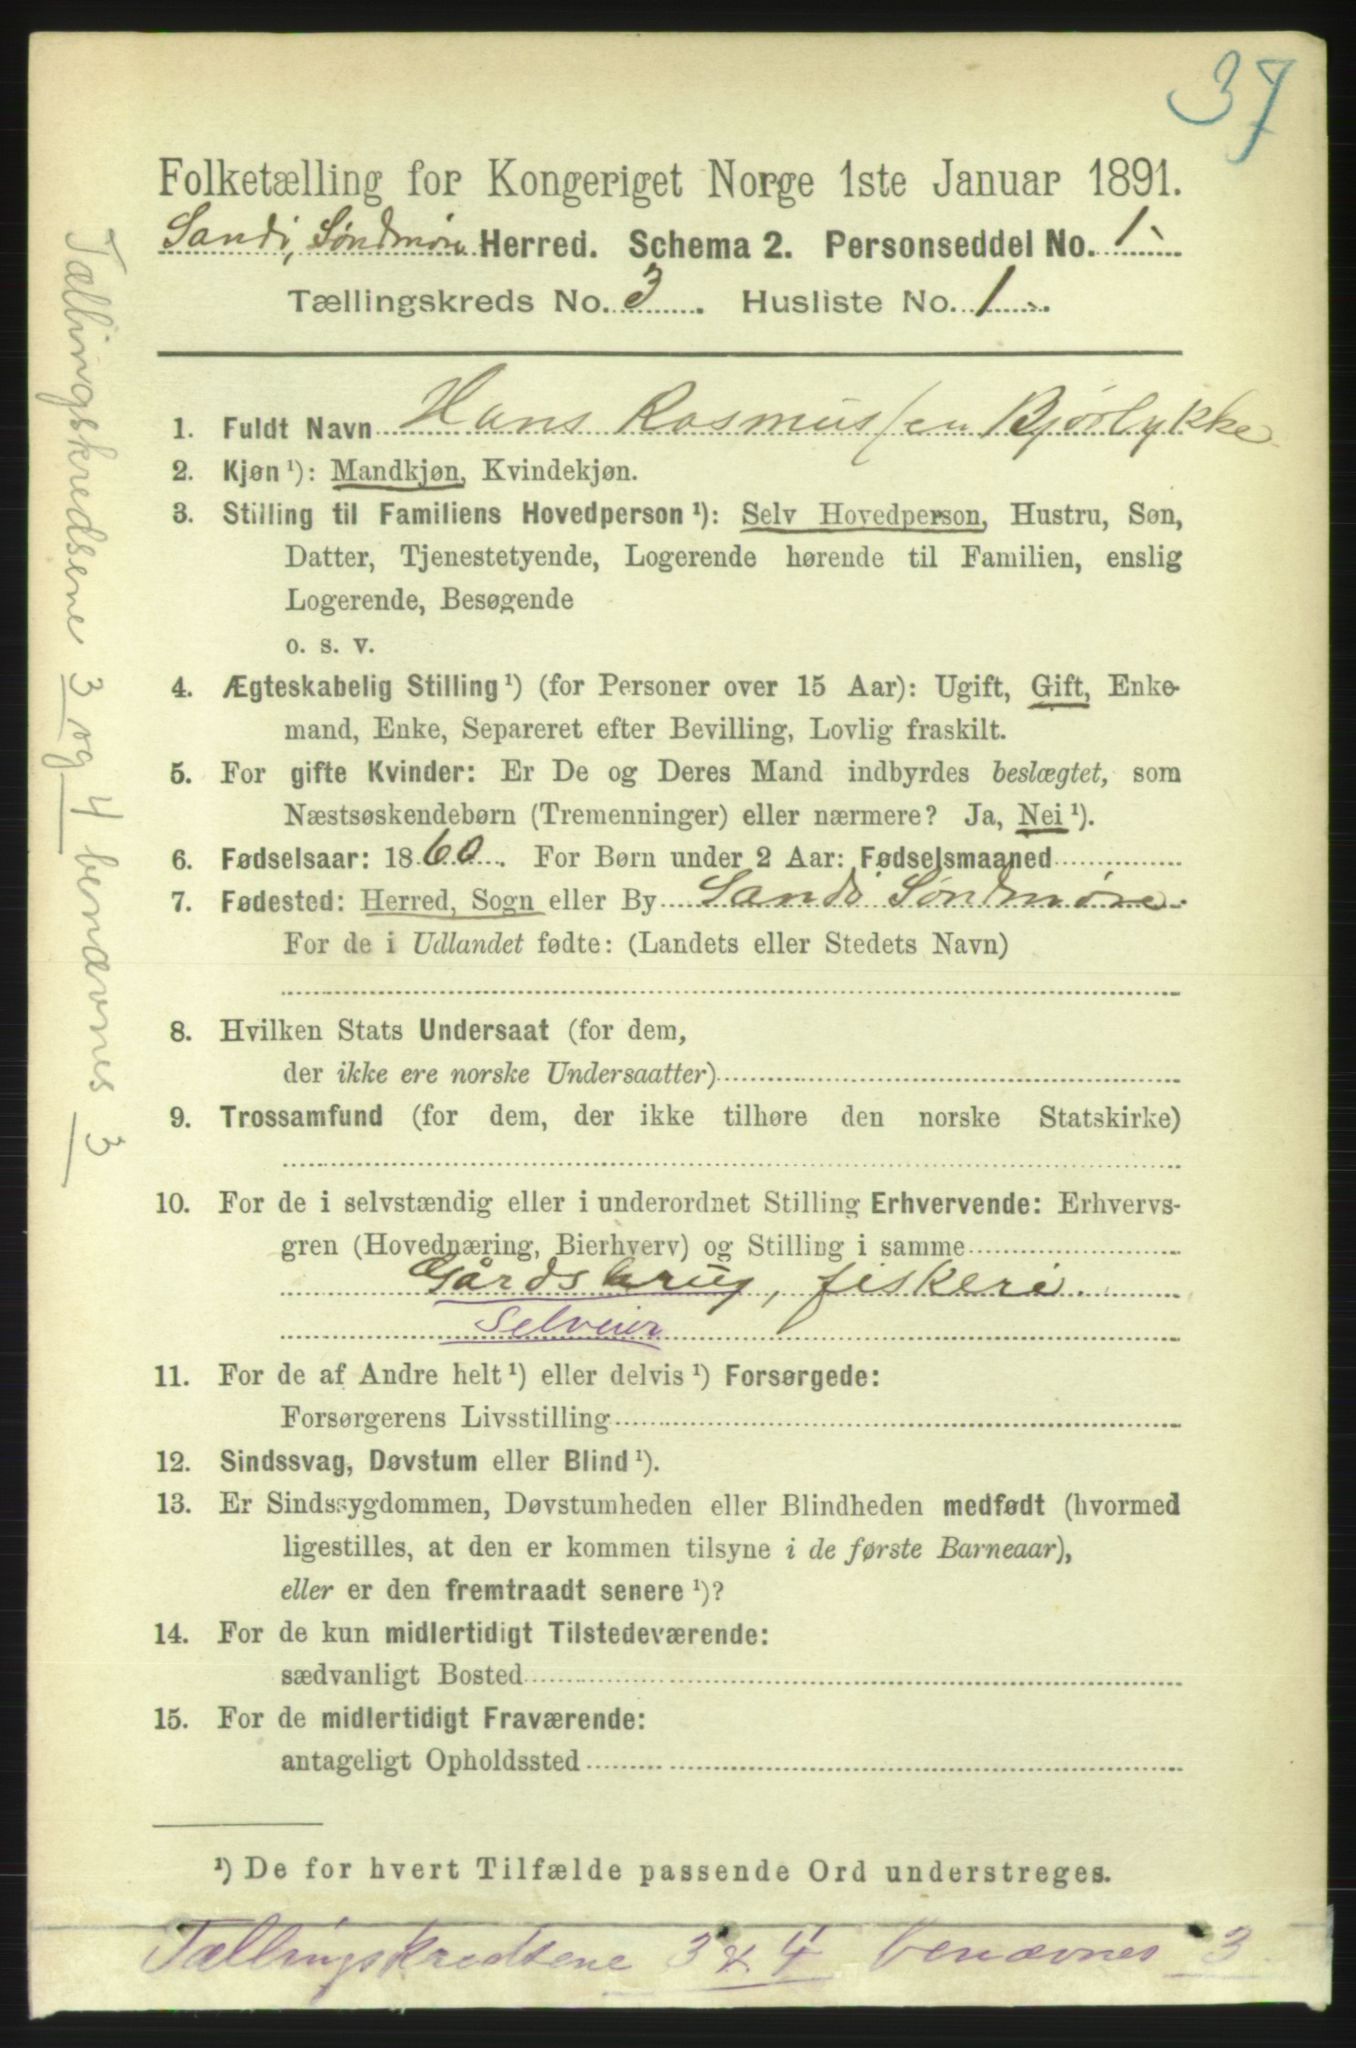 37
Folketælling for Kongeriget Norge 1ste Januar 1891.
Sandö, Søndmøre Herred. Schema 2. Personseddel No. 1
Tællingskreds No. 3. Husliste No. 1.
1. Fuldt Navn Hans Rasmussen Bjørlykke
2. Kjøn¹): Mandkjøn, Kvindekjøn.
3. Stilling til Familiens Hovedperson¹): Selv Hovedperson, Hustru, Søn,
Datter, Tjenestetyende, Logerende hørende til Familien, enslig
Logerende, Besøgende
o. s. v.
4. Ægteskabelig Stilling¹) (for Personer over 15 Aar): Ugift, Gift, Enke-
mand, Enke, Separeret efter Bevilling, Lovlig fraskilt.
5. For gifte Kvinder: Er De og Deres Mand indbyrdes beslægtet, som
Næstsøskendebørn (Tremenninger) eller nærmere? Ja, Nei¹).
6. Fødselsaar: 1860. For Børn under 2 Aar: Fødselsmaaned
7. Fødested: Herred, Sogn eller By Sandö Søndmøre.
For de i Udlandet fødte: (Landets eller Stedets Navn)
8. Hvilken Stats Undersaat (for dem,
der ikke ere norske Undersaatter)
9. Trossamfund (for dem, der ikke tilhøre den norske Statskirke)
10. For de i selvstændig eller i underordnet Stilling Erhvervende: Erhvervs-
gren (Hovednæring, Bierhverv) og Stilling i samme
Gårdsbrug, fiskeri.
Selveier
11. For de af Andre helt¹) eller delvis¹) Forsørgede:
Forsørgerens Livsstilling
12. Sindssvag, Døvstum eller Blind¹).
13. Er Sindssygdommen, Døvstumheden eller Blindheden medfødt (hvormed
ligestilles, at den er kommen tilsyne i de første Barneaar),
eller er den fremtraadt senere¹)?
14. For de kun midlertidigt Tilstedeværende:
sædvanligt Bosted
15. For de midlertidigt Fraværende:
antageligt Opholdssted
¹) De for hvert Tilfælde passende Ord understreges.
Tællingskredsene 3 & 4 benævnes 3
Tællingskredsene 3 og 4 benævnes 3